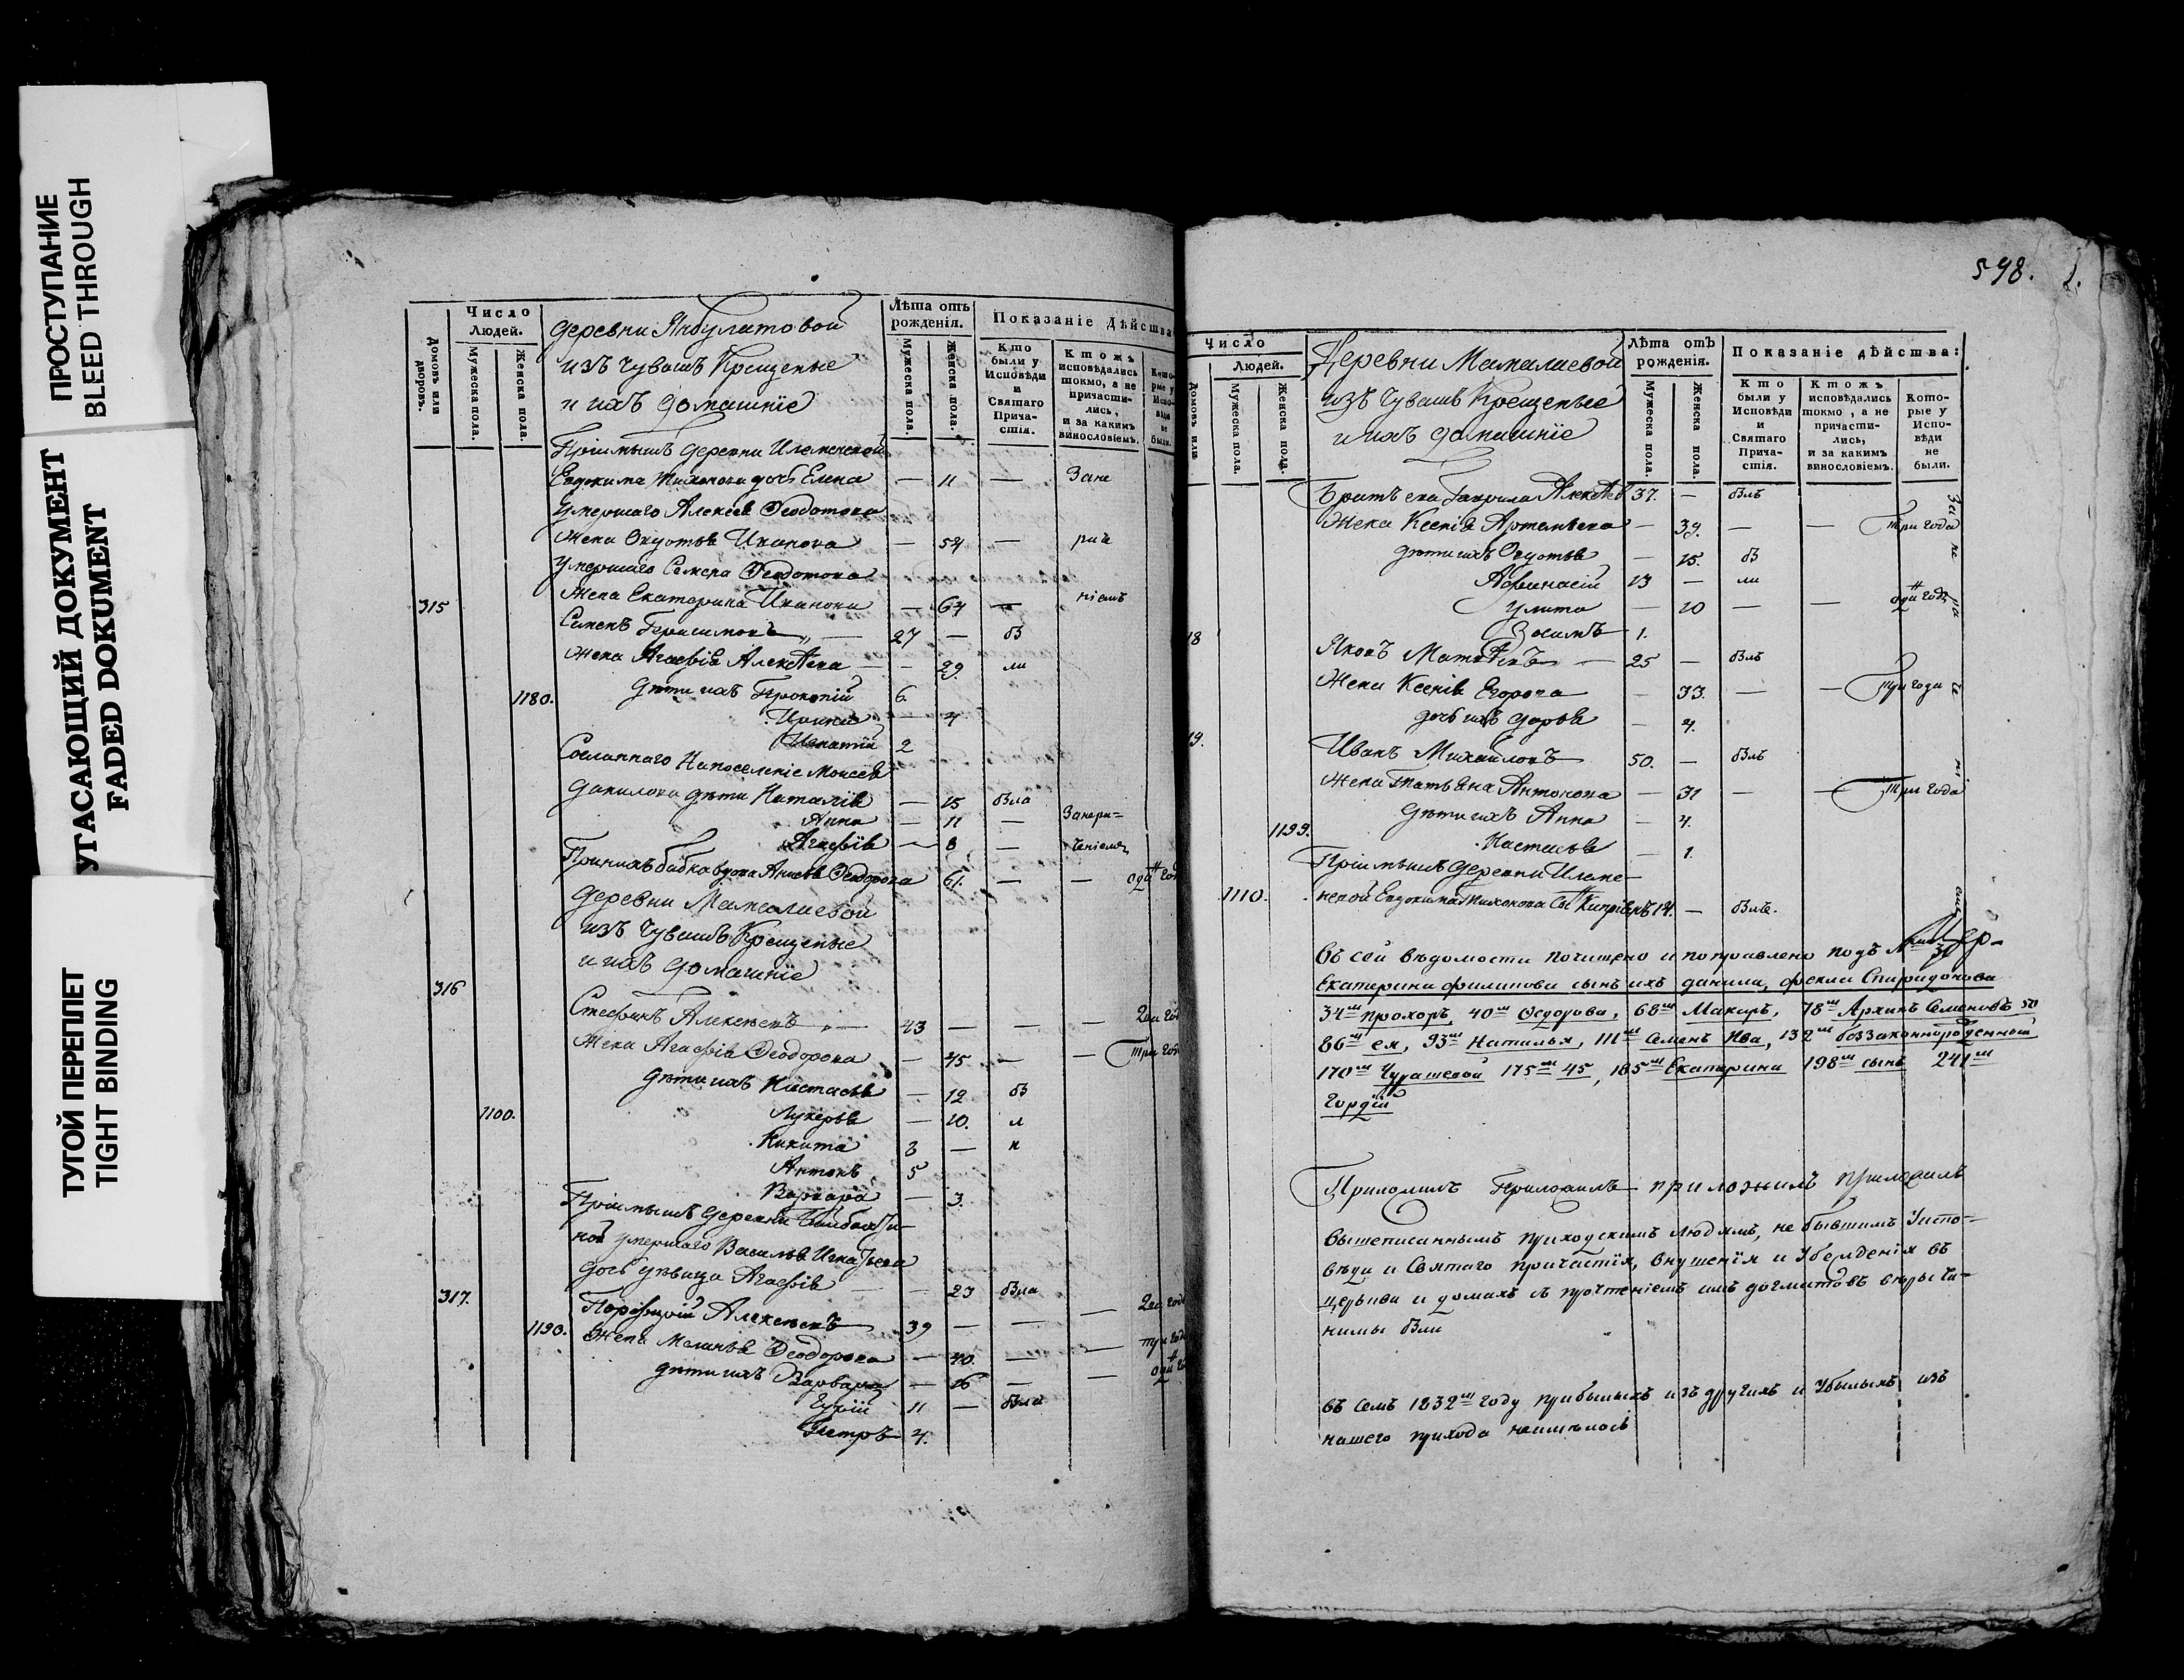 ПРОСТУПАНИЕ
BLEED THROUGH
УГАСАЮЩИЙ ДОКУМЕНТ
FADED DOKUMENT
ТУГОЙ ПЕРЕПЛЕТ
TIGHT BINDING
Домовъ или дворовъ.
Число Людей.
Мужеска пола.
Женска пола.
деревни Янбулатовой
изъ чувашъ Крещеные
и ихъ домашніе
Лѣта отъ рожденія.
Мужеска пола.
Женска пола.
Показаніе дѣйства
Кто были у Исповѣди и Святаго Прича-стія.
Ктожъ исповѣдались токмо, а не причасти-лись, и за какимъ винословіемъ.
Кото-рые у Испо-вѣди не были.
Пріимышъ деревни
Евдокима Тихонова дочь Елена — 11 — Зане
Умершаго Алексея Феодотова
жена Овдотья Иванова — 54 — риче
Умершаго Семена Феодотова
315 жена Екатерина Иванова — 64 — ніемъ
Семенъ Герасимовъ — 27 — бы
жена Агафія Алексѣева — 29. ли
1180. дѣти ихъ Прокопій 6.
Ирина — 4
Игнатій 2
Сосланнаго на поселеніе Моисея
Данилова дѣти Наталія — 15 была
Анна — 11 — Занери=
Агафія — 8 — ченіемъ
бабка вдова Феодорова 61. — — один год
деревни Мамалиевой
изъ чувашъ Крещеные
и ихъ домашніе
316
Стефанъ Алексѣевъ — 43 — — — два год
жена Агафія Феодорова — 45 — — три год
дѣти ихъ Настасья — 12 бы
1100. Лукерья — 10. л
Никита 8 — и
Антонъ 5
Варвара — 3.
Пріимышъ деревни
ной умершаго Василья Игнатьева
дочь девица Агафія — — 23 была
317. Порфирій Алексѣевъ 39 — — — два года
1190. жена Маланья Феодорова — 40. — — три года
дѣти ихъ Варвара — 16 — — один го
Гурій 11 — были
Петръ 4.
598.
Домовъ или
Число Людей.
Мужеска пола.
Женска пола.
Деревни Мамалиевой
изъ чувашъ Крещеные
и ихъ домашніе
Лѣта отъ рожденія.
Мужеска пола.
Женска пола.
Показаніе дѣйства:
Кто были у Исповѣди и Святаго Прича-стія.
Ктожъ исповѣдались токмо, а не причасти-лись, и за какимъ винословіемъ.
Кото-рые у Испо-вѣди не были.
Братъ ево Гаврила Алексѣев 37. — былъ
жена Ксенія Артемьева — 39. — — три года
дѣти ихъ Овдотья — 15. бы
Афанасій 13 — ли
Улита — 10 — — один годъ
18 Зосимъ 1.
Яковъ Матвѣевъ — 25 — былъ
жена Ксенія Егорова — 33. — — три года
дочь ихъ Дарья — 4.
19.
Иванъ Михайловъ 50. — былъ
жена Татьяна Антонова — 31 — — три года
дѣти ихъ Анна — 4.
1199. Настасья — 1.
Пріимышъ деревни
1110. Евдокима Тихонова сын 14. — былъ.
въ сей вѣдомости почищено и поправлено подъ
Екатерина Филипова сынъ ихъ Данила, Фекла Спиридонова
34м Прохоръ, 40м Федорова, 68м Макаръ, 78м Архипъ Семеновъ 50
86м ея, 93м Наталья, 111м Семенъ Ива, 132м беззаконнорожденный
170м Чурашевой 175м 45, 185м Екатерина 198м сынъ 241м
Гордій
вышеписаннымъ приходскимъ людямъ, не бывшимъ у испо-
вѣди и Святаго причастія, внушенія и убежденія въ
церькви и домахъ съ прочтеніемъ имъ догматовъ вѣры чи-
нимы были
въ семъ 1832м году прибылыхъ изъ другихъ и убылыхъ изъ
нашего прихода неимѣлось